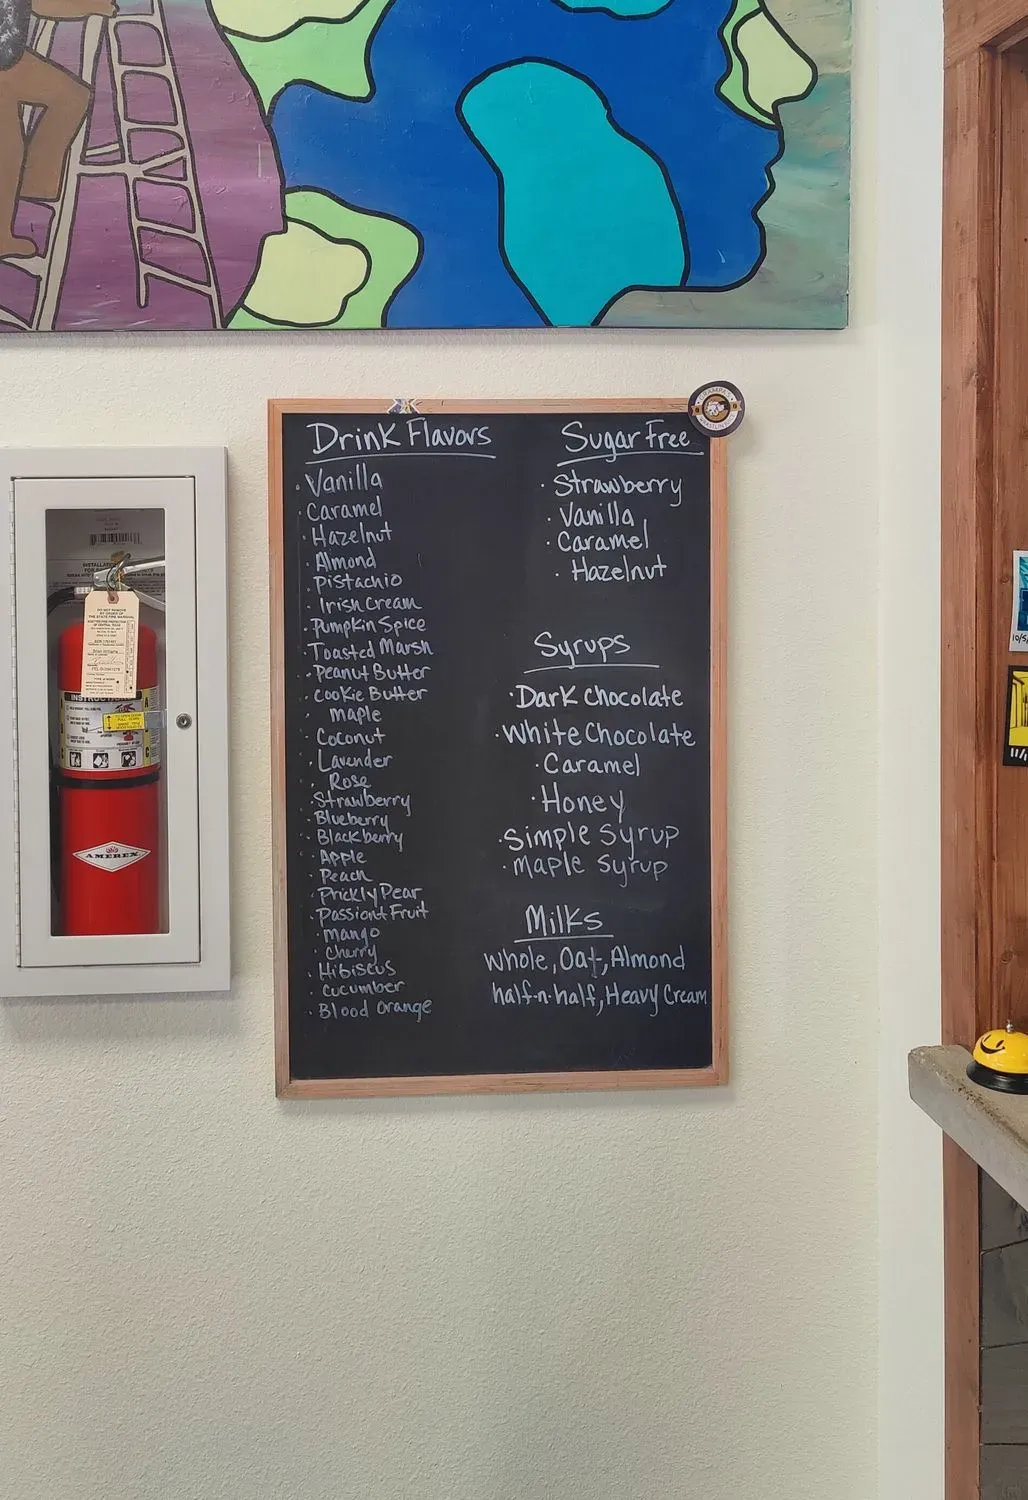 Drink Flavors
Vanilla
Caramel
Hazelnut
Almond
Pistachio
Irish Cream
Pumpkin Spice
Toasted Marsh
Peanut Butter
Cookie Butter
maple
Coconut
Lavender
Rose
Strawberry
Blueberry
Blackberry
Apple
Peach
Prickly Pear
Passiont Fruit
Mango
Cherry
Hibiscus
Cucumber
Blood Orange
Sugar Free
Strawberry
Vanilla
Caramel
Hazelnut
Syrups
Dark Chocolate
White Chocolate
Caramel
Honey
Simple Syrup
Maple Syrup
Milks
Whole, Oat, Almond
half-n-half, Heavy Cream
DO NOT REMOVE
BY ORDER OF
THE STATE FIRE MARSHAL
INSTRUCTIONS
AMEREX